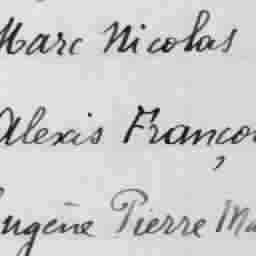 Marc Nicolas
Alexis Franço
ugène Pierre Ma